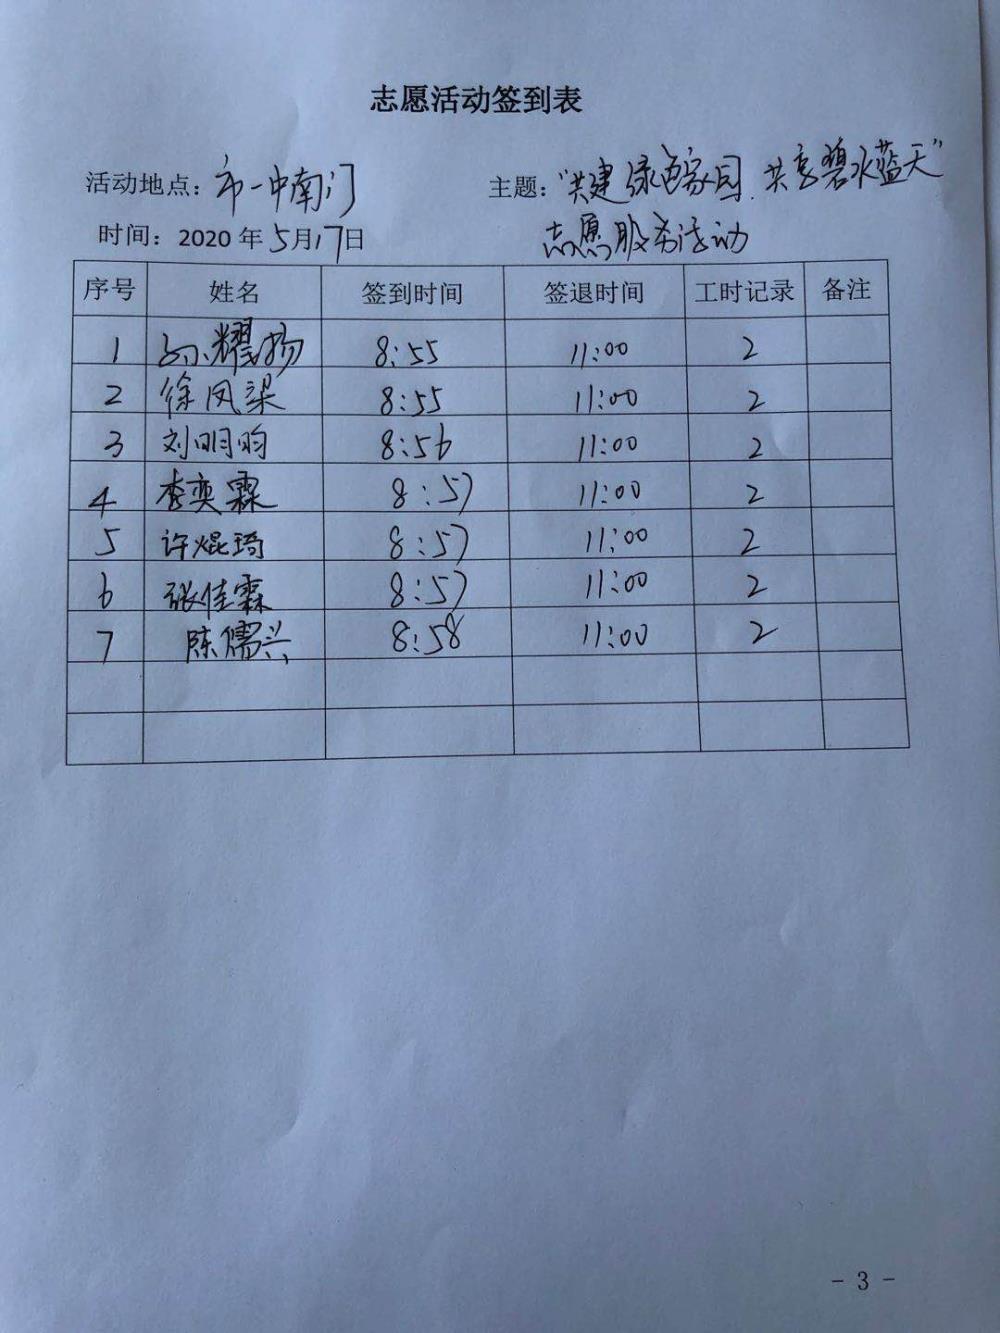 志愿活动签到表
活动地点：市一中南门 主题："共建绿色家园 共享碧水蓝天"
时间：2020年5月17日 志愿服务活动
序号 姓名 签到时间 签退时间 工时记录 备注
1 孙耀扬 8:55 11:00 2
2 徐凤梁 8:55 11:00 2
3 刘明昀 8:56 11:00 2
4 李奕霖 8:57 11:00 2
5 许焜琦 8:57 11:00 2
6 张佳霖 8:57 11:00 2
7 陈儒兴 8:58 11:00 2
- 3 -